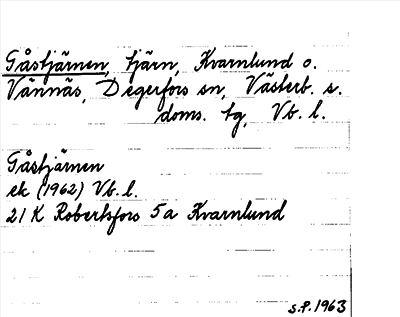 Gåstjärnen, tjärn, Kvarnlund o.
Vännäs, Degerfors sn, Västerb. s.
doms. tg, Vb. l.
Gåstjärnen
ek (1962) Vb. l.
21 K Robertsfors 5a Kvarnlund
S.P. 1963